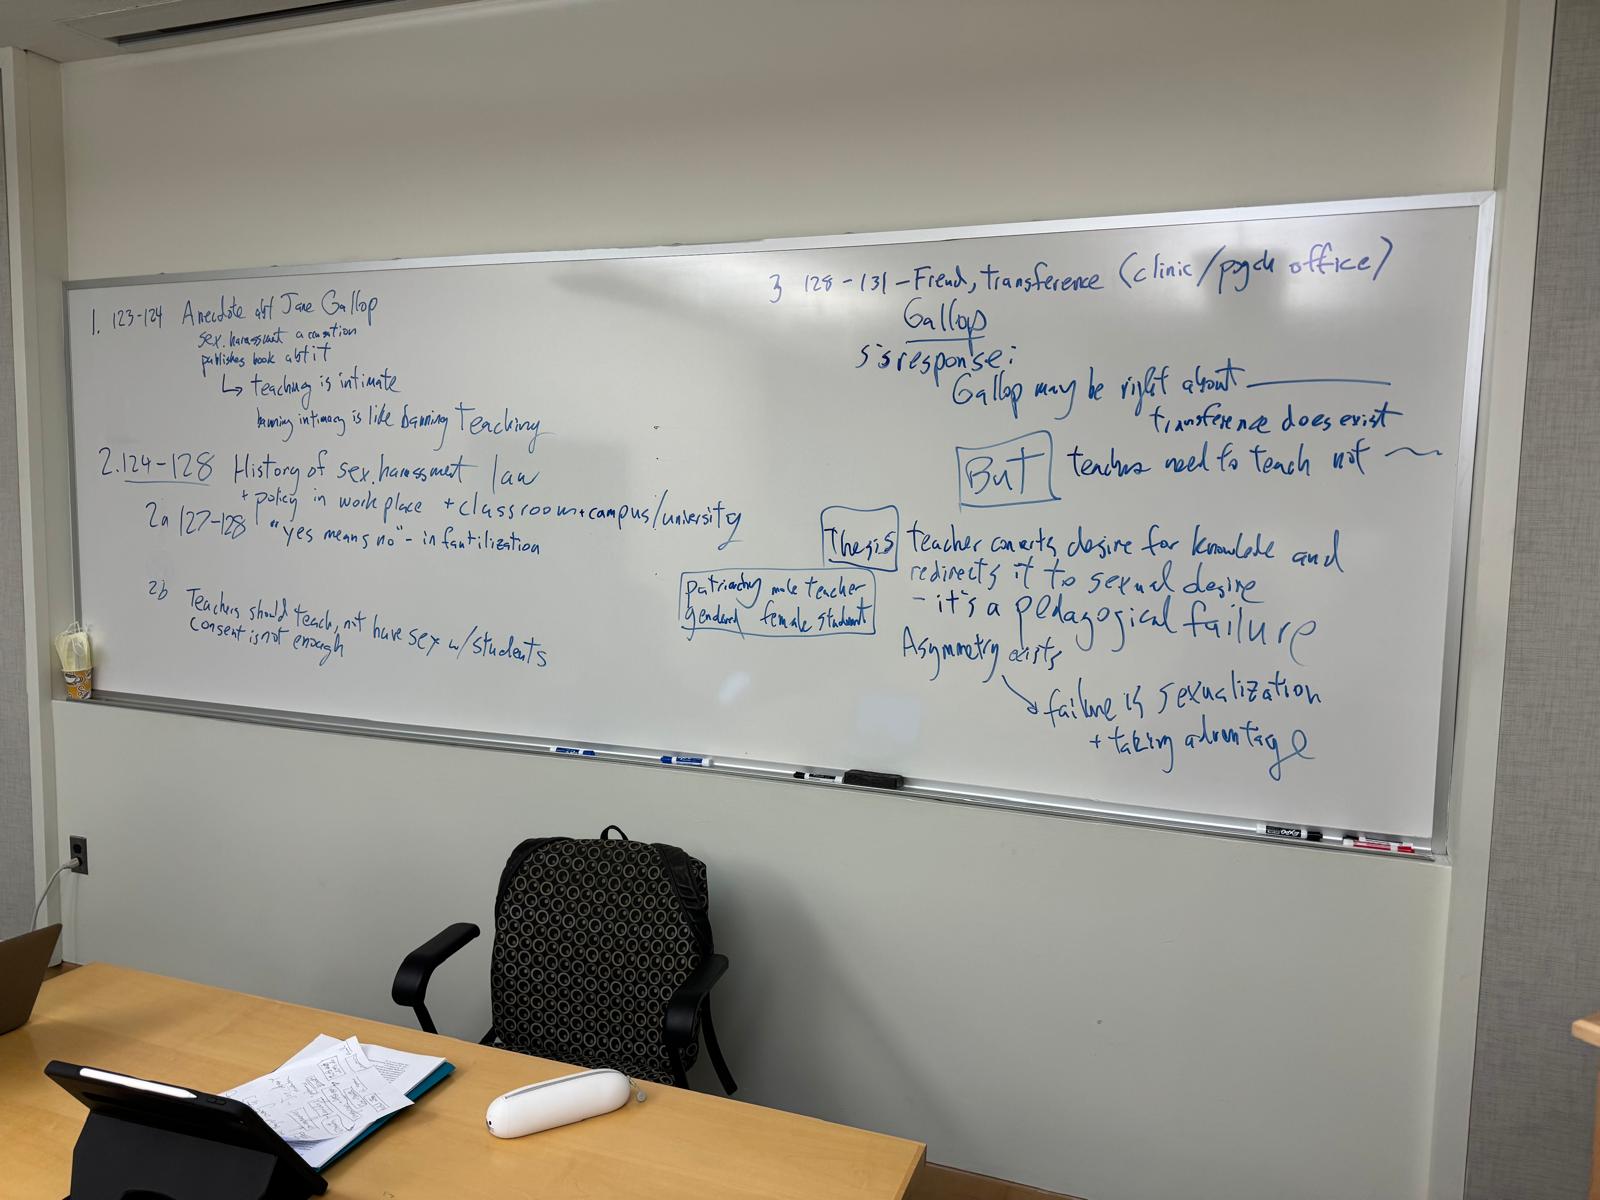 1. 123-124 Anecdote abt Jane Gallop
sex. harassment accusation
publishes book abt it
↳ teaching is intimate
banning intimacy is like banning Teaching
2. 124-128 History of sex. harassment law
+ policy in workplace + classroom + campus/university
2a 127-128 "yes means no" - infantilization
2b Teachers should teach, not have sex w/students
consent is not enough
3 128-131 - Freud, transference (clinic/psych office)
Gallop
S's response:
Gallop may be right about
transference does exist
BUT teachers need to teach not
Thesis teacher converts desire for knowledge and
redirects it to sexual desire
- it's a pedagogical failure
patriarchy male teacher
gendered female student
Asymmetry exists
failure is sexualization
+ taking advantage
EXPO